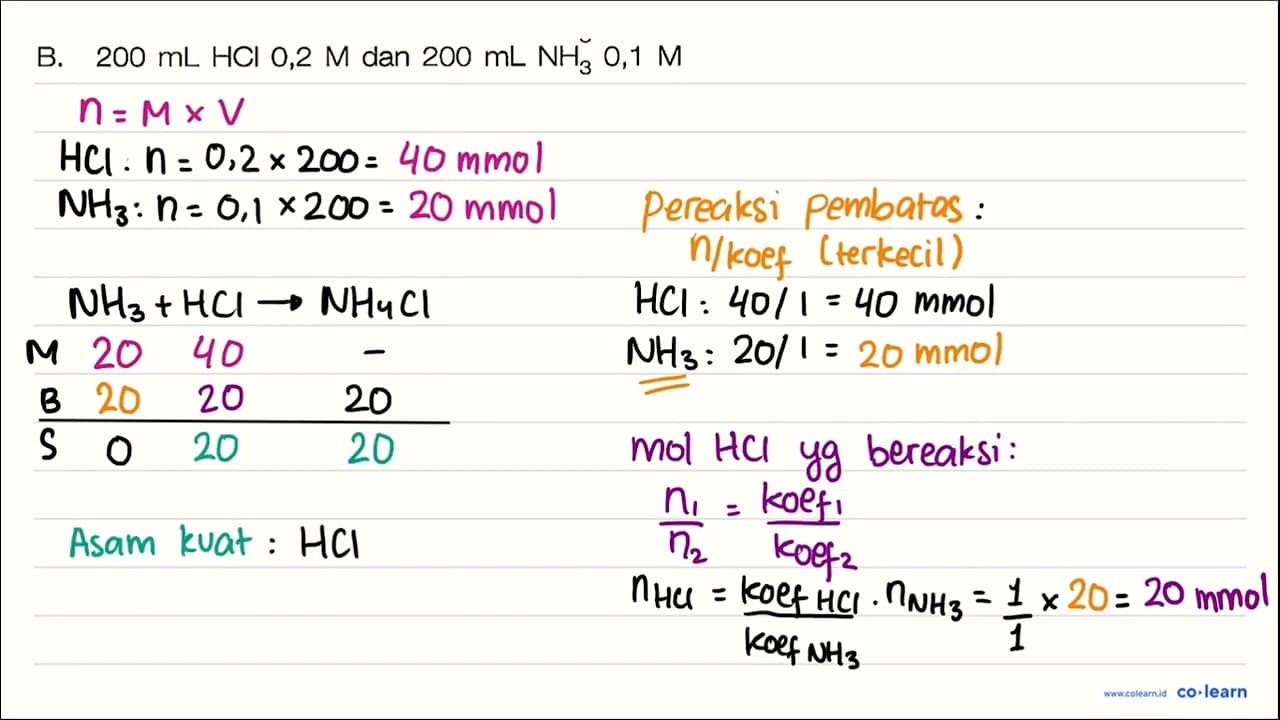 B. 200 mL HCl 0,2 M dan 200 mL NH3 0,1 M
n = M × V
HCl : n = 0,2 × 200 = 40 mmol
NH3 : n = 0,1 × 200 = 20 mmol
NH3 + HCl → NH4Cl
M 20 40 -
B 20 20 20
S 0 20 20
Asam kuat : HCl
Pereaksi pembatas :
n/koef (terkecil)
HCl : 40/1 = 40 mmol
NH3 : 20/1 = 20 mmol
mol HCl yg bereaksi :
n1/n2 = koef1/koef2
nHCl = koef HCl/koef NH3 . nNH3 = 1/1 × 20 = 20 mmol
www.colearn.id co·learn